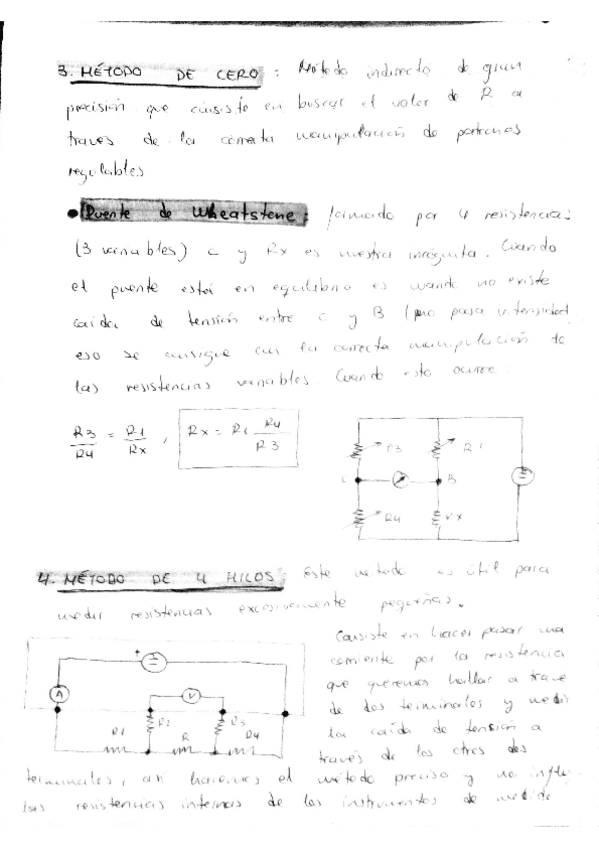 3. MÉTODO DE CERO: Método indirecto de gran
precisión que consiste en buscar el valor de R a
traves de la correcta manipulación de patrones
regulables
• Puente de Wheatstone: formado por 4 resistencias
(3 variables) C y Rx es nuestra incognita. Cuando
el puente está en equilibrio es cuando no existe
caida de tensión entre C y B (no pasa intensidad
eso se consigue con la correcta manipulación de
las resistencias variables. Cuando esto ocurre
R3/R4 = R1/Rx , Rx = R1 R4/R3
R3 R1
C B
R4 Rx
4. MÉTODO DE 4 HILOS: Este metodo es útil para
medir resistencias excesivamente pequeñas.
Consiste en hacer pasar una
corriente por la resistencia
que queremos hallar a trave
de dos terminales y medir
la caida de tensión a
través de los otros dos
+
A V
R1 R2 R R3 R4
terminales, asi hacemos el método preciso y no influ
las resistencias internas de los instrumentos de medida